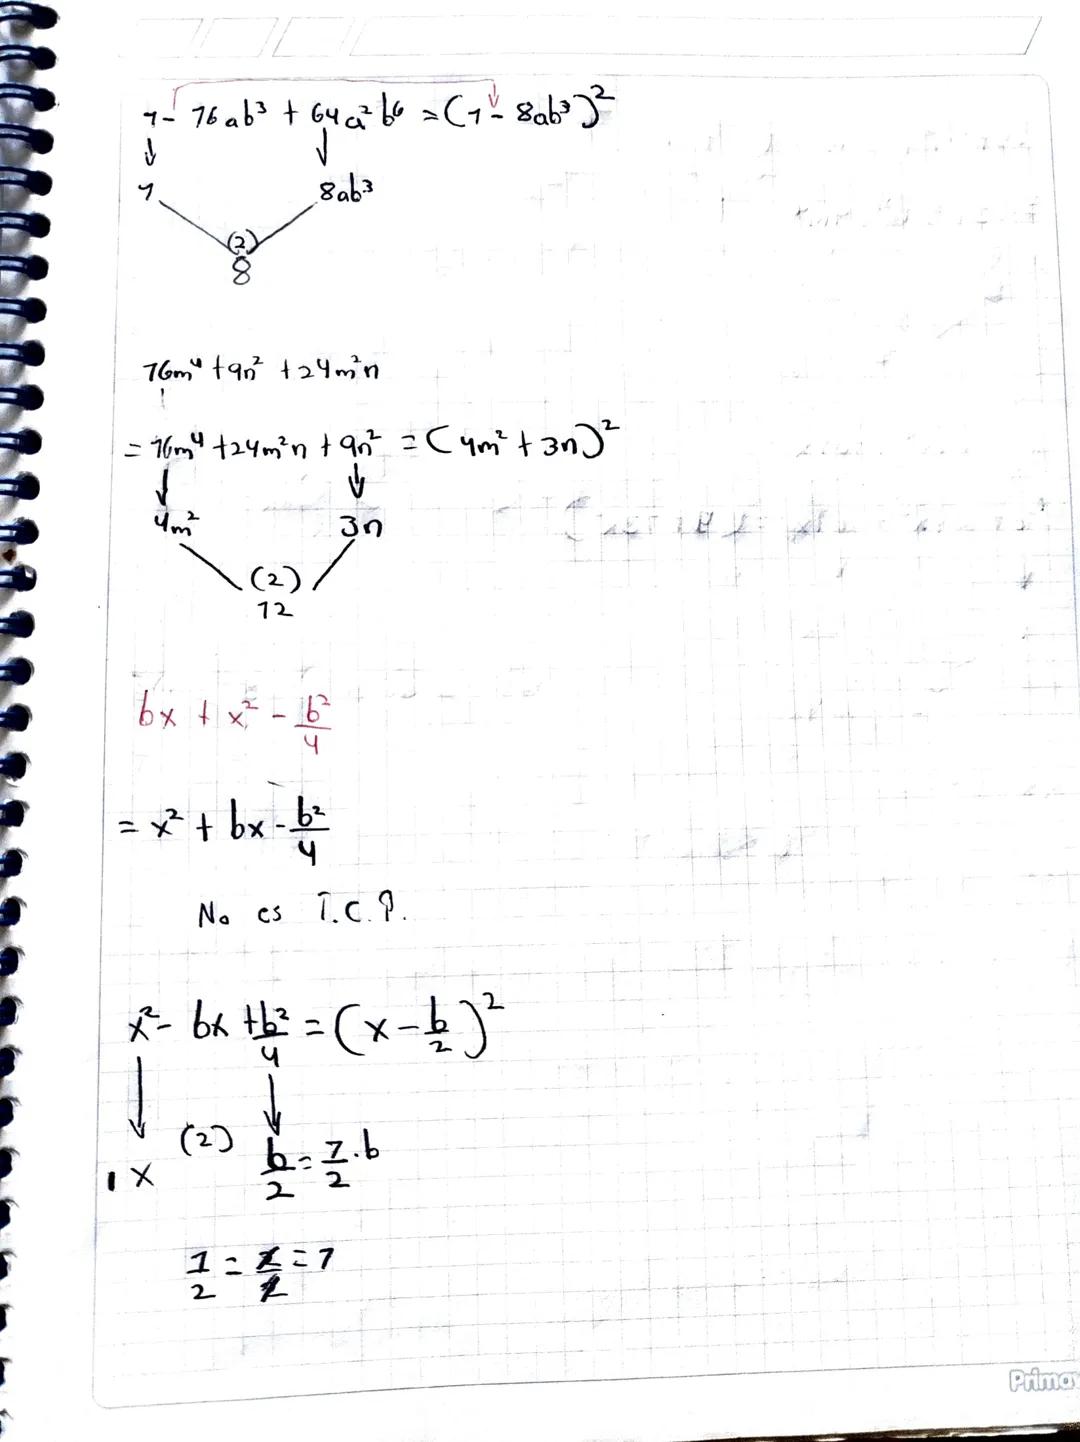 1 - 16ab³ + 64a²b⁶ = (1 - 8ab³)²
1 8ab³
(2)
8
16m⁴ + 9n² + 24m²n
= 16m⁴ + 24m²n + 9n² = (4m² + 3n)²
4m² 3n
(2)
12
bx + x² - b²/4
= x² + bx - b²/4
No es T.C.P.
x² - bx + b²/4 = (x - b/2)²
1x (2) b/2 = 1/2 · b
1/2 = 2/2 = 1